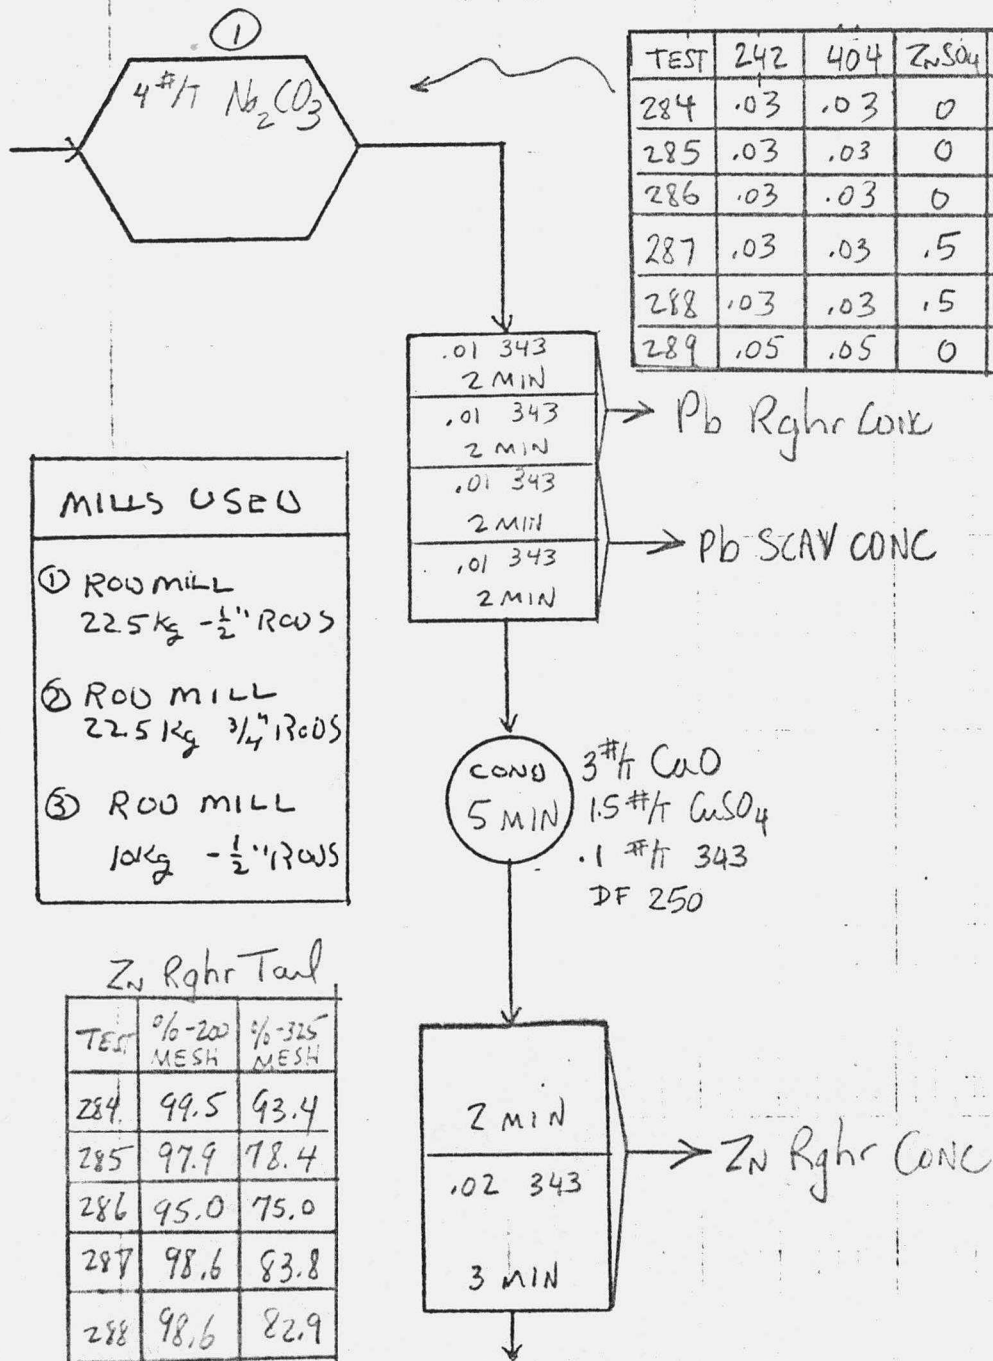 ①
4 #/T Na₂CO₃
TEST 242 404 ZNSO₄
284 .03 .03 0
285 .03 .03 0
286 .03 .03 0
287 .03 .03 .5
288 .03 .03 .5
289 .05 .05 0
.01 343
2 MIN
.01 343
2 MIN
.01 343
2 MIN
.01 343
2 MIN
Pb Rghr Conc
Pb SCAV CONC
MILLS USED
① ROD MILL
22.5 Kg - 1/2" RODS
② ROD MILL
22.5 Kg 3/4" RODS
③ ROD MILL
10Kg - 1/2" RODS
COND
5 MIN
3 #/T CaO
1.5 #/T CuSO₄
.1 #/T 343
DF 250
2 MIN
.02 343
3 MIN
ZN Rghr CONC
ZN Rghr Tail
TEST %-200 MESH %-325 MESH
284 99.5 93.4
285 97.9 78.4
286 95.0 75.0
287 98.6 83.8
288 98.6 82.9